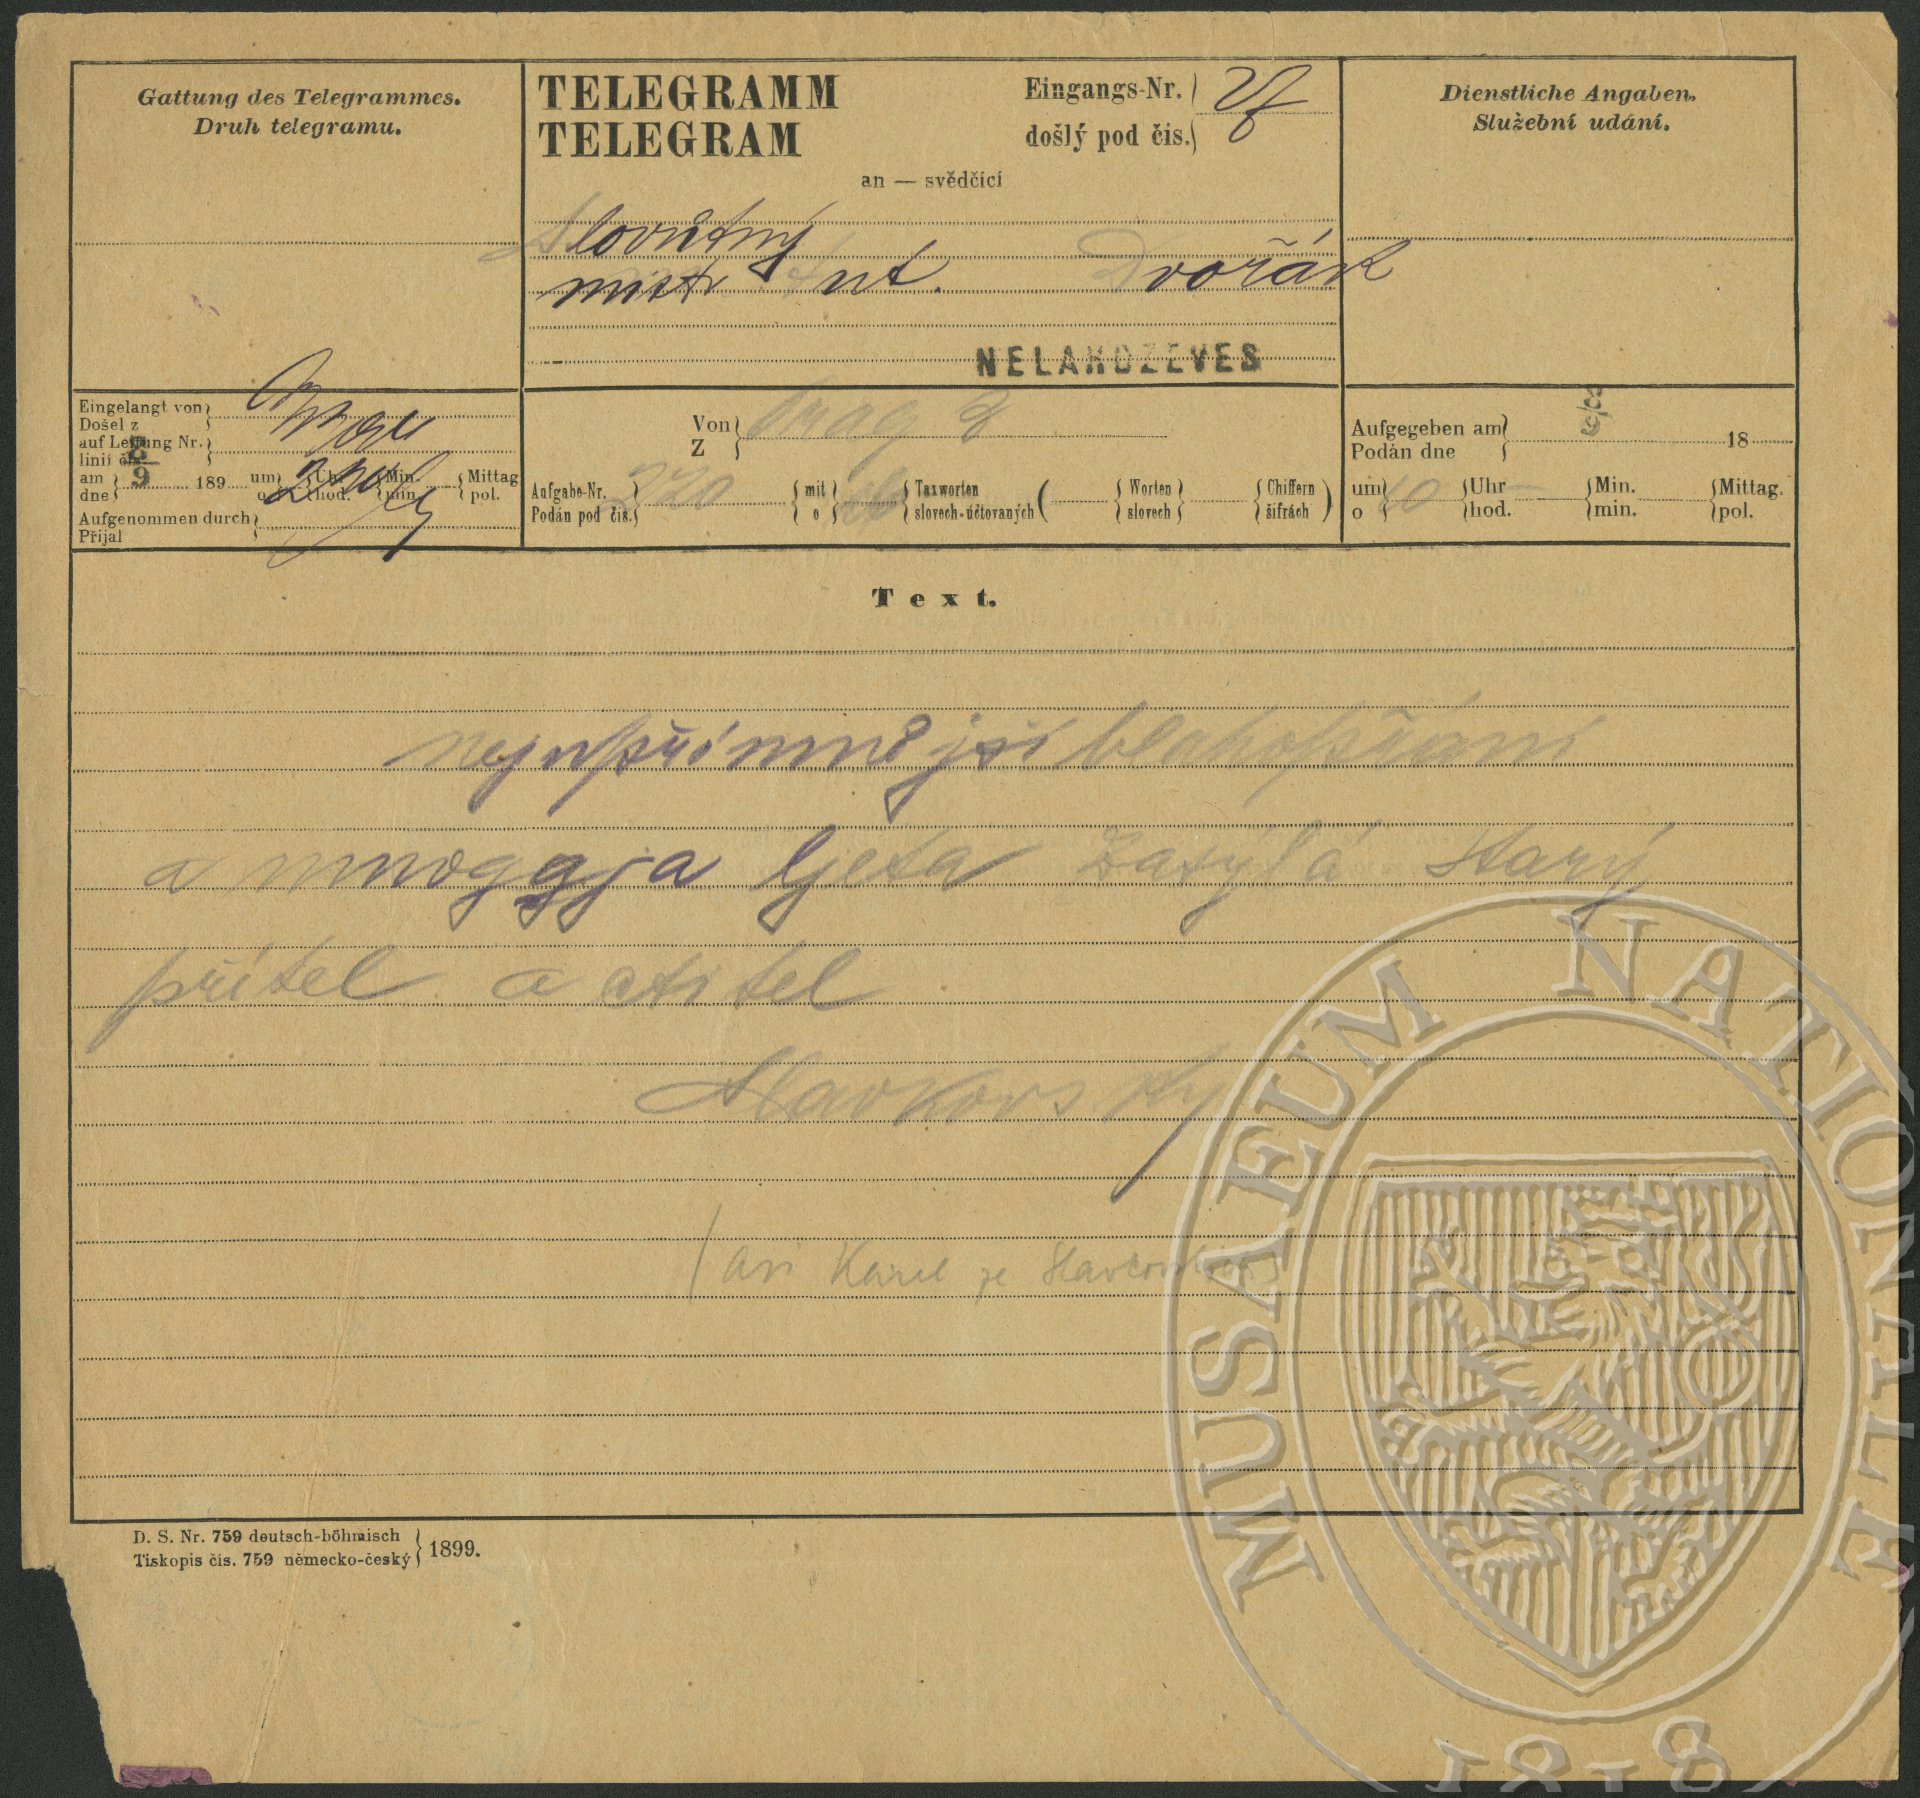 Gattung des Telegrammes.
Druh telegramu.
TELEGRAMM
TELEGRAM
Eingangs-Nr.
došlý pod čís.
an — svědčící
Dienstliche Angaben.
Služební udání.
Slovutný
mistr Ant. Dvořák
NELAHOZEVES
Eingelangt von
Došel z
auf Leitung Nr.
linii čís.
8/9
am
dne
189
um
o
Uhr
hod.
Min.
min.
Mittag
pol.
Aufgenommen durch
Přijal
Von
Z
Prag 8
Aufgabe-Nr.
Podán pod čís.
220
mit
o
Taxworten
slovech-účtovaných
(
Worten
slovech
Chiffern
šifrách
)
Aufgegeben am
Podán dne
18
um
o
10
Uhr
hod.
Min.
min.
Mittag.
pol.
Text.
nejupřímnější blahopřání
a mnoggja ljeta zasýlá starý
přítel a ctitel
Slavkovský
(asi Karel ze Slavkovských)
D. S. Nr. 759 deutsch-böhmisch
Tiskopis čís. 759 německo-český
1899.
MUSAEUM NATIONALE
1818